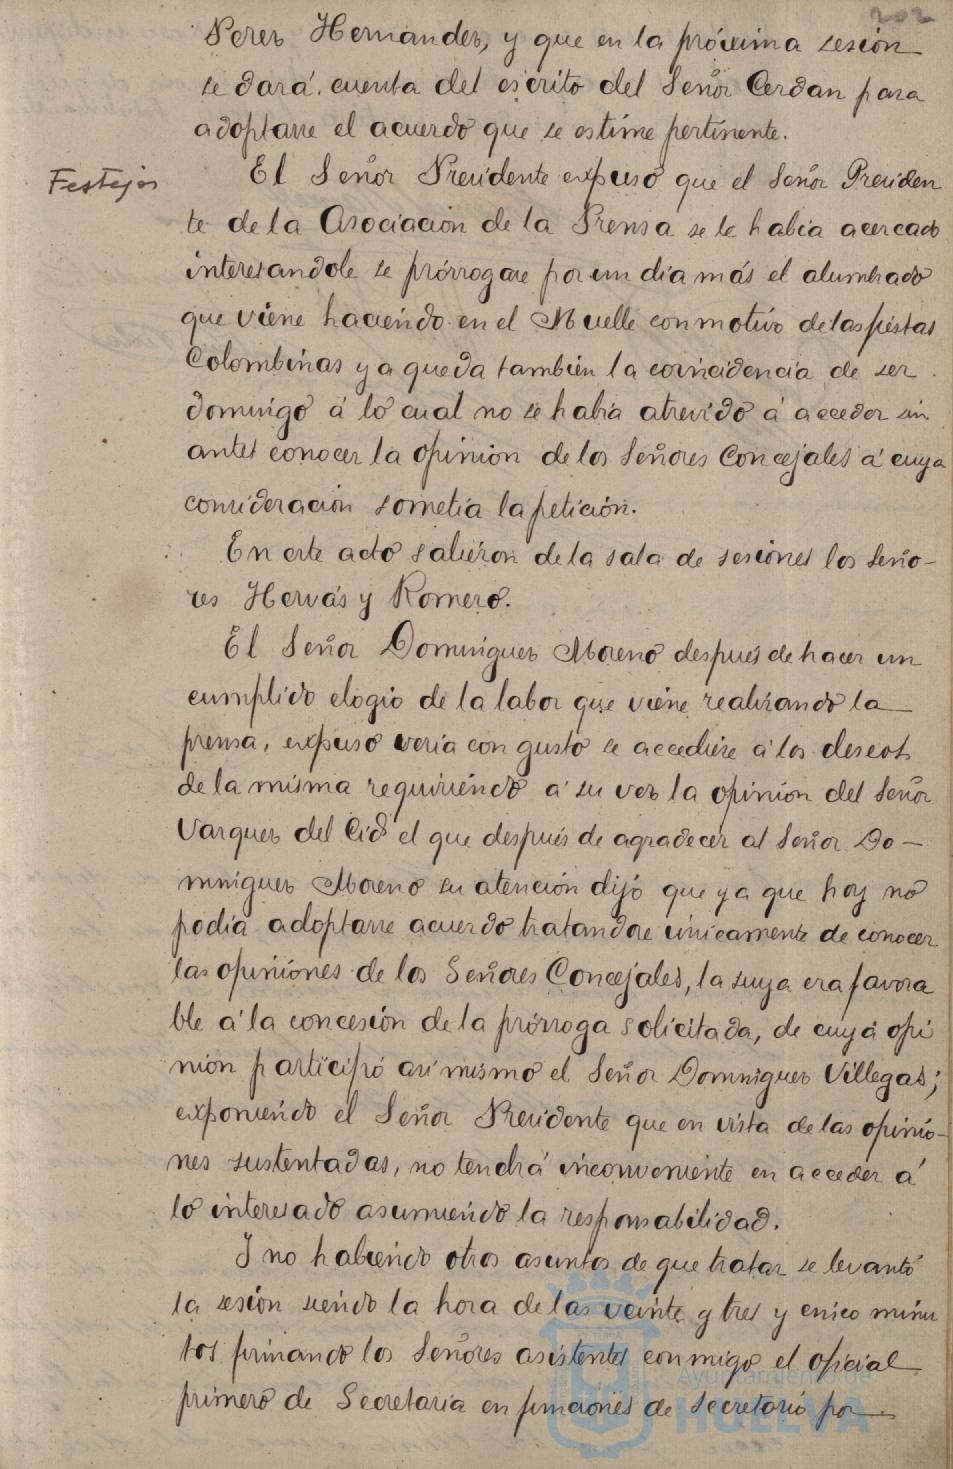 202
Perez Hernandez, y que en la próxima sesión
se dará cuenta del escrito del Señor Cerdan para
adoptarse el acuerdo que se estime pertinente.
Festejos
El Señor Presidente expuso que el Señor Presiden
te de la Asociación de la Prensa se le había acercado
interesandole se prórrogase por un día más el alumbrado
que viene haciendo en el Muelle con motivo de las fiestas
Colombinas y a que da también la coincidencia de ser
domingo á lo cual no se había atrevido á acceder sin
antes conocer la opinión de los Señores Concejales á cuya
consideración sometía la petición.
En este acto salieron de la sala de sesiones los Seño-
res Hervás y Romero.
El Señor Dominguez Moreno después de hacer un
cumplido elogio de la labor que viene realizando la
prensa, expuso vería con gusto se accediese á los deseos
de la misma requiriendo á su vez la opinión del Señor
Vazquez del Cid el que después de agradecer al Señor Do-
minguez Moreno su atención dijo que ya que hoy no
podía adoptarse acuerdo tratandose únicamente de conocer
las opiniones de los Señores Concejales, la suya era favora
ble á la concesión de la prórroga solicitada, de cuya opi
nión participó asi mismo el Señor Dominguez Villegas;
exponiendo el Señor Presidente que en vista de las opinio-
nes sustentadas, no tendrá inconveniente en acceder á
lo interesado asumiendo la responsabilidad.
Y no habiendo otros asuntos de que tratar se levantó
la sesión siendo la hora de las veinte y tres y cinco minu
tos firmando los Señores asistentes conmigo el oficial
primero de Secretaría en funciones de secretario por
Ayuntamiento de
HUELVA